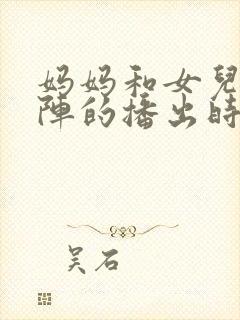 妈妈和女兒
陣的播出時
吴石